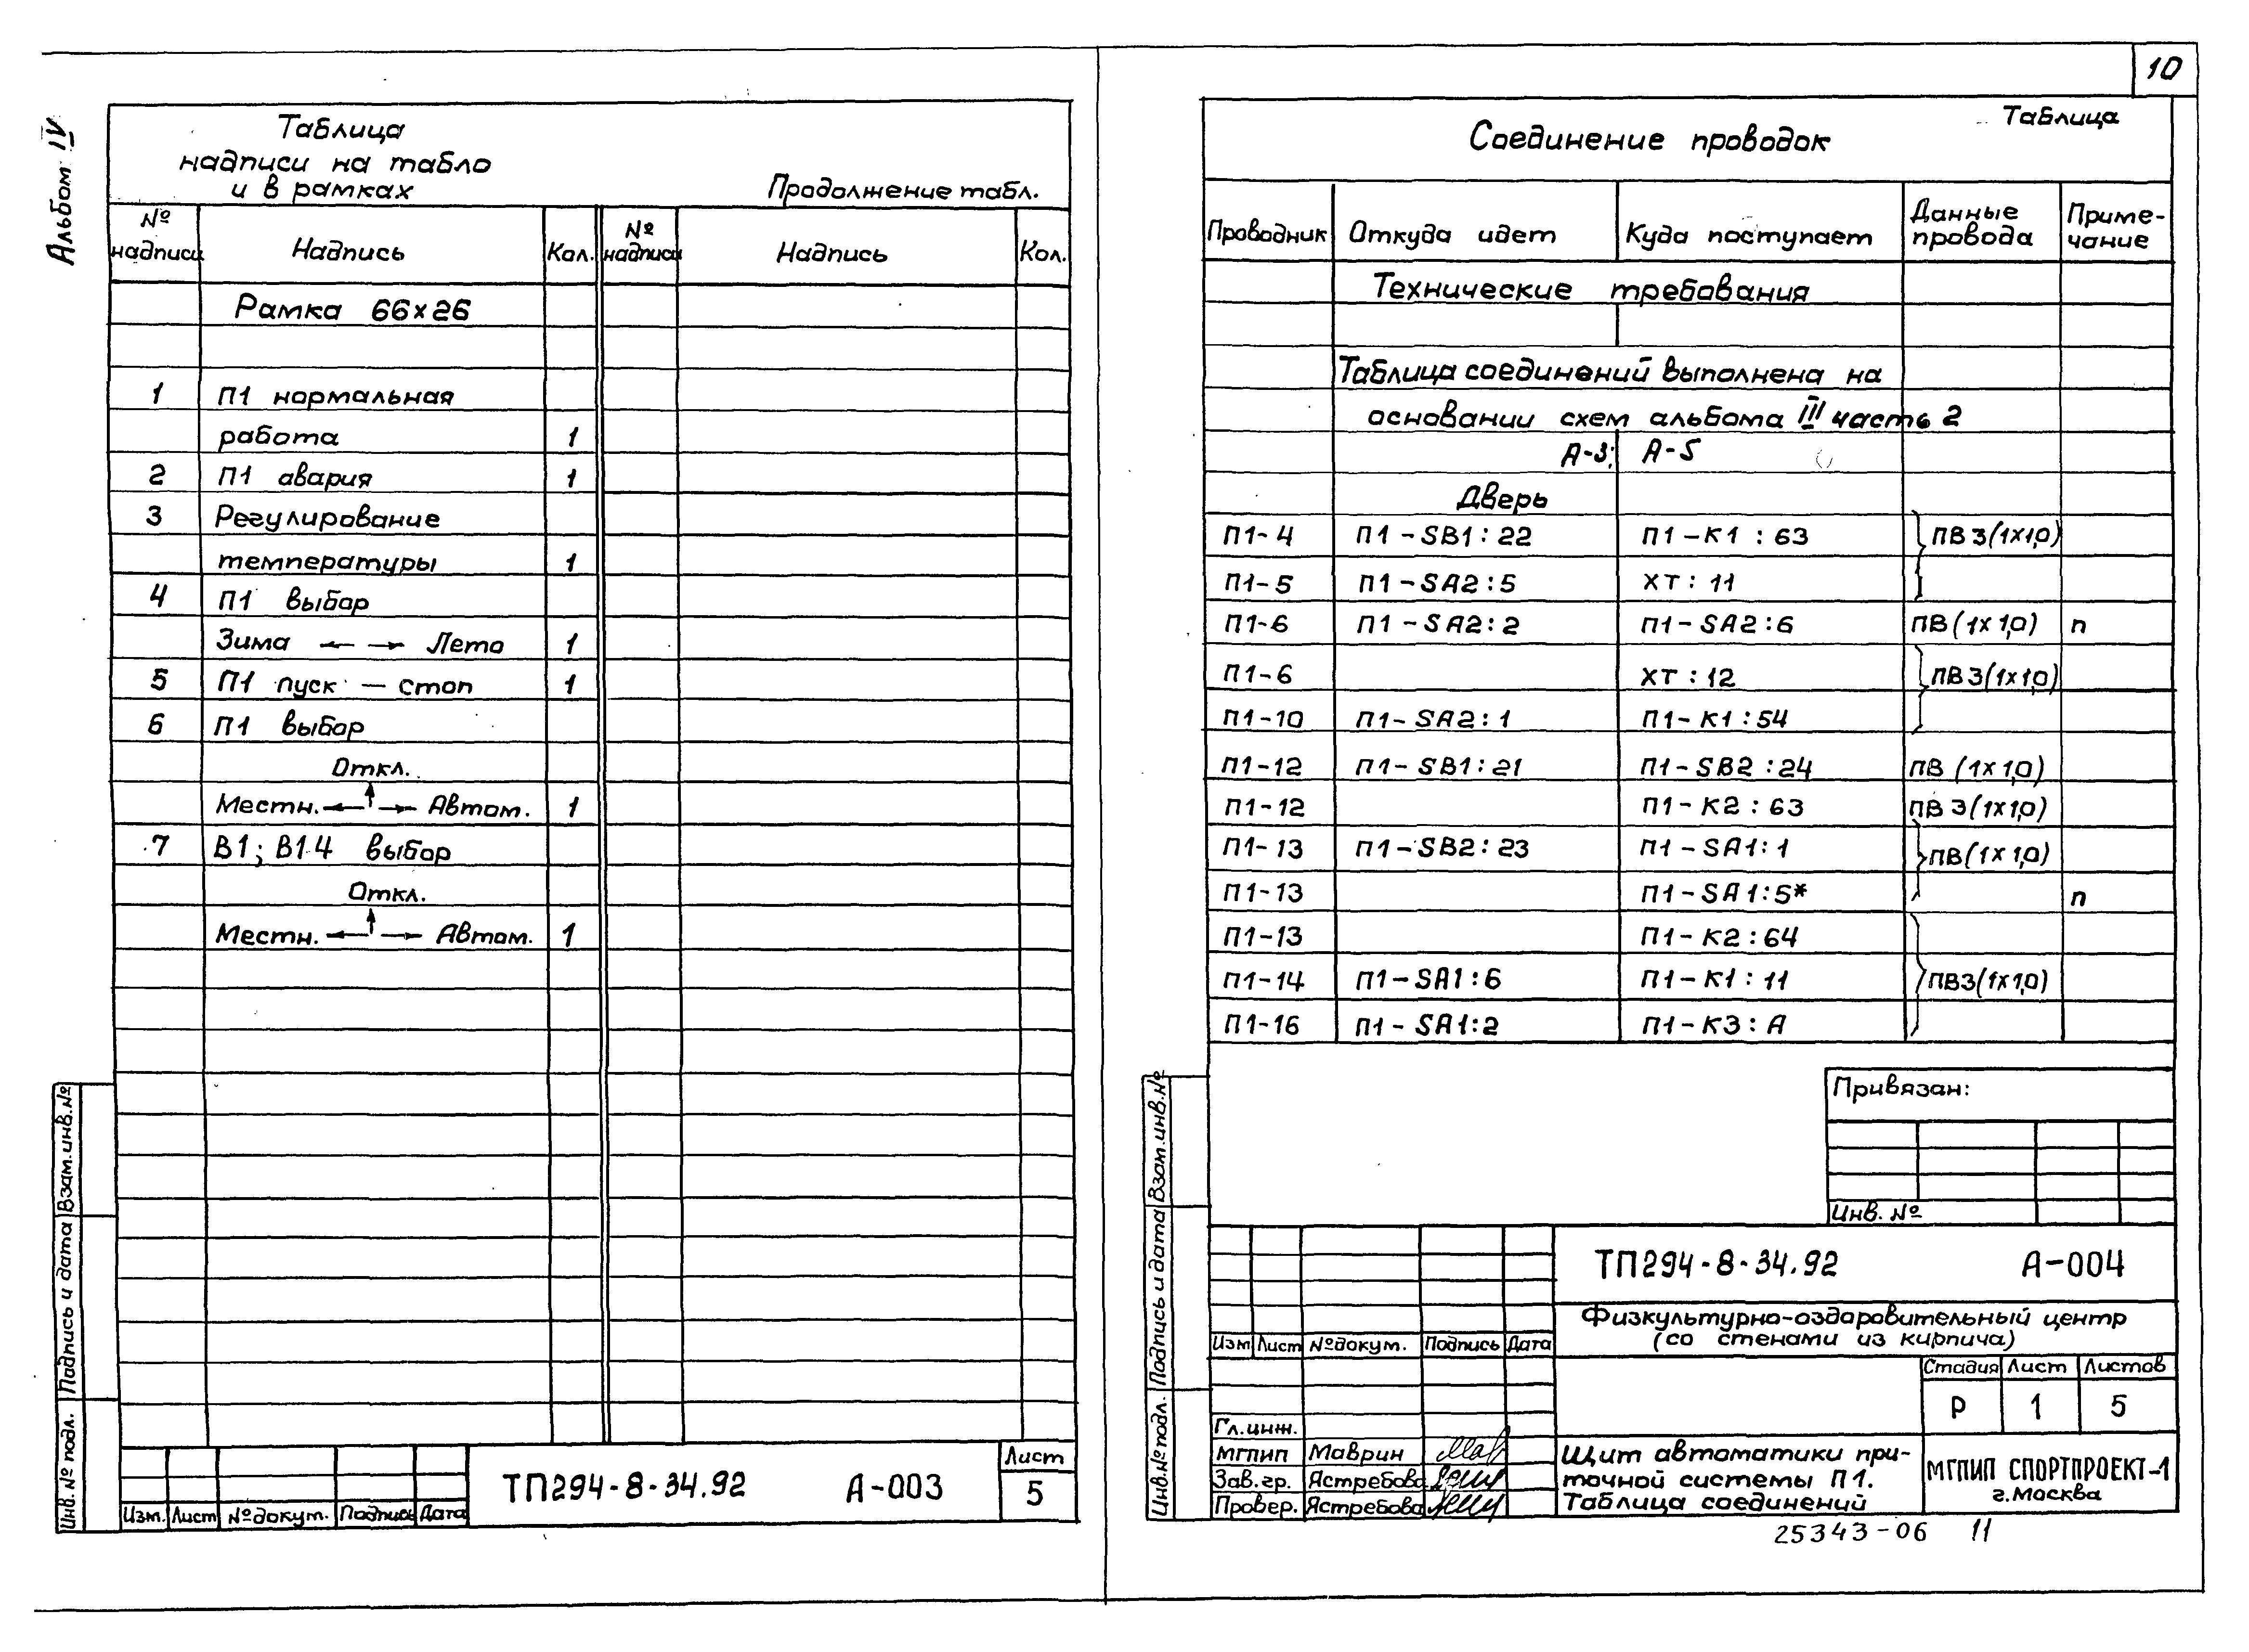 10
Альбом IV
Таблица
надписи на табло
и в рамках
Продолжение табл.
№ надписи Надпись Кол. № надписи Надпись Кол.
Рамка 66×26
1 П1 нормальная
работа 1
2 П1 авария 1
3 Регулирование
температуры 1
4 П1 выбор
Зима ← → Лето 1
5 П1 пуск — стоп 1
6 П1 выбор
Откл.
Местн. ← ↑ → Автом. 1
7 В1; В14 выбор
Откл.
Местн. ← ↑ → Автом. 1
Инв. № подл. Подпись и дата Взам. инв. №
Изм. Лист № докум. Подпись Дата
ТП294-8-34.92 А-003
Лист
5
Таблица
Соединение проводок
Проводник Откуда идет Куда поступает Данные провода Примечание
Технические требования
Таблица соединений выполнена на
основании схем альбома III часть 2
А-3; А-5
Дверь
П1-4 П1-SB1:22 П1-К1:63 ПВ3(1×1,0)
П1-5 П1-SA2:5 ХТ:11
П1-6 П1-SA2:2 П1-SA2:6 ПВ(1×1,0) п
П1-6 ХТ:12 ПВ3(1×1,0)
П1-10 П1-SA2:1 П1-К1:54
П1-12 П1-SB1:21 П1-SB2:24 ПВ(1×1,0)
П1-12 П1-К2:63 ПВ3(1×1,0)
П1-13 П1-SB2:23 П1-SA1:1 ПВ(1×1,0)
П1-13 П1-SA1:5* п
П1-13 П1-К2:64
П1-14 П1-SA1:6 П1-К1:11 ПВ3(1×1,0)
П1-16 П1-SA1:2 П1-К3:А
Привязан:
Инв. №
Инв. № подл. Подпись и дата Взам. инв. №
ТП294-8-34.92 А-004
Физкультурно-оздоровительный центр
(со стенами из кирпича)
Изм Лист № докум. Подпись Дата
Стадия Лист Листов
Р 1 5
Гл. инж.
МГПИП Маврин
Зав. гр. Ястребова
Провер. Ястребова
Щит автоматики при-
точной системы П1.
Таблица соединений
МГПИП СПОРТПРОЕКТ-1
г. Москва
25343-06 11